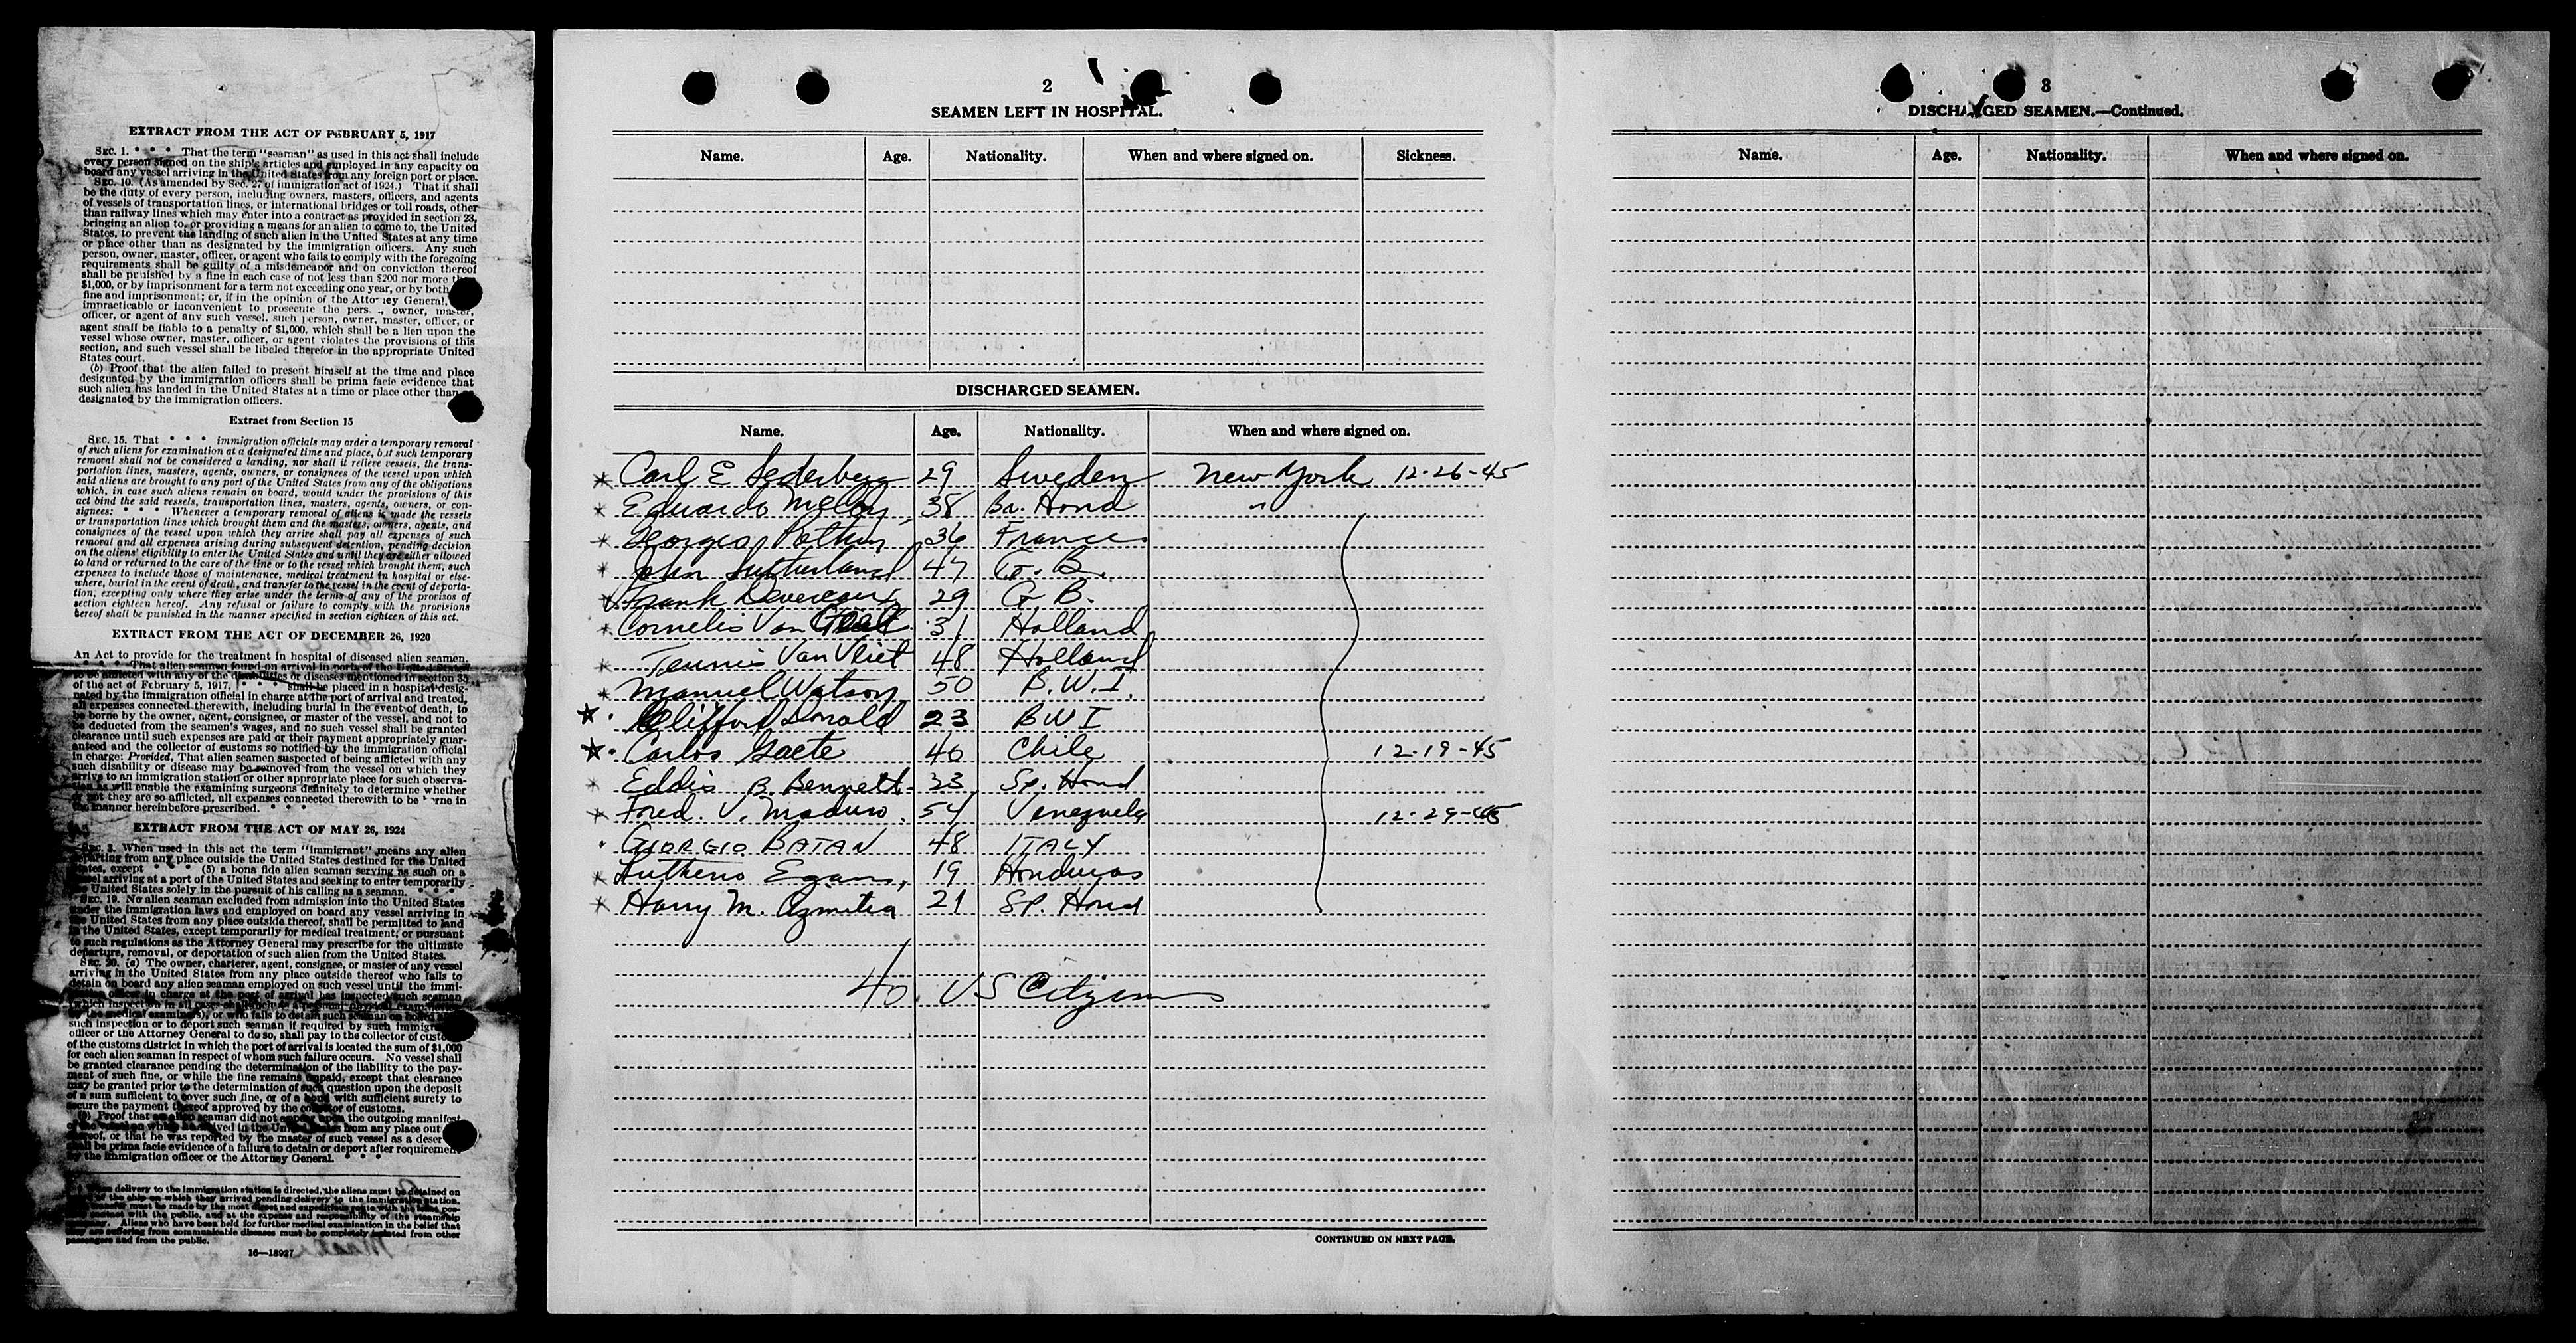 EXTRACT FROM THE ACT OF FEBRUARY 5, 1917
SEC. 1. * * * That the term "seaman" as used in this act shall include
every person signed on the ship's articles and employed in any capacity on
board any vessel arriving in the United States from any foreign port or place.
SEC. 10. (As amended by Sec. 27 of immigration act of 1924.) That it shall
be the duty of every person, including owners, masters, officers, and agents
of vessels of transportation lines, or international bridges or toll roads, other
than railway lines which may enter into a contract as provided in section 23,
bringing an alien to, or providing a means for an alien to come to, the United
States, to prevent the landing of such alien in the United States at any time
or place other than as designated by the immigration officers. Any such
person, owner, master, officer, or agent who fails to comply with the foregoing
requirements shall be guilty of a misdemeanor and on conviction thereof
shall be punished by a fine in each case of not less than $200 nor more than
$1,000, or by imprisonment for a term not exceeding one year, or by both
fine and imprisonment; or, if in the opinion of the Attorney General,
impracticable or inconvenient to prosecute the pers , owner, master,
officer, or agent of any such vessel, such person, owner, master, officer, or
agent shall be liable to a penalty of $1,000, which shall be a lien upon the
vessel whose owner, master, officer, or agent violates the provisions of this
section, and such vessel shall be libeled therefor in the appropriate United
States court.
(b) Proof that the alien failed to present himself at the time and place
designated by the immigration officers shall be prima facie evidence that
such alien has landed in the United States at a time or place other than as
designated by the immigration officers.
Extract from Section 15
SEC. 15. That * * * immigration officials may order a temporary removal
of such aliens for examination at a designated time and place, but such temporary
removal shall not be considered a landing, nor shall it relieve vessels, the trans-
portation lines, masters, agents, owners, or consignees of the vessel upon which
said aliens are brought to any port of the United States from any of the obligations
which, in case such aliens remain on board, would under the provisions of this
act bind the said vessels, transportation lines, masters, agents, owners, or con-
signees: * * * Whenever a temporary removal of aliens is made the vessels
or transportation lines which brought them and the masters, owners, agents, and
consignees of the vessel upon which they arrive shall pay all expenses of such
removal and all expenses arising during subsequent detention, pending decision
on the aliens' eligibility to enter the United States and until they are either allowed
to land or returned to the care of the line or to the vessel which brought them, such
expenses to include those of maintenance, medical treatment in hospital or else-
where, burial in the event of death, and transfer to the vessel in the event of deporta-
tion, excepting only where they arise under the terms of any of the provisos of
section eighteen hereof. Any refusal or failure to comply with the provisions
hereof shall be punished in the manner specified in section eighteen of this act.
EXTRACT FROM THE ACT OF DECEMBER 26, 1920
An Act to provide for the treatment in hospital of diseased alien seamen.
* * * * That alien seamen found on arrival in ports of the United States
to be afflicted with any of the disabilities or diseases mentioned in section 35
of the act of February 5, 1917, * * * shall be placed in a hospital desig-
nated by the immigration official in charge at the port of arrival and treated,
all expenses connected therewith, including burial in the event of death, to
be borne by the owner, agent, consignee, or master of the vessel, and not to
be deducted from the seamen's wages, and no such vessel shall be granted
clearance until such expenses are paid or their payment appropriately guar-
anteed and the collector of customs so notified by the immigration official
in charge: Provided, That alien seamen suspected of being afflicted with any
such disability or disease may be removed from the vessel on which they
arrive to an immigration station or other appropriate place for such observa-
tion as will enable the examining surgeons definitely to determine whether
or not they are so afflicted, all expenses connected therewith to be borne in
the manner hereinbefore prescribed. * * *
EXTRACT FROM THE ACT OF MAY 26, 1924
SEC. 3. When used in this act the term "immigrant" means any alien
departing from any place outside the United States destined for the United
States, except * * * (5) a bona fide alien seaman serving as such on a
vessel arriving at a port of the United States and seeking to enter temporarily
the United States solely in the pursuit of his calling as a seaman. * * *
SEC. 19. No alien seaman excluded from admission into the United States
under the immigration laws and employed on board any vessel arriving in
the United States from any place outside thereof, shall be permitted to land
in the United States, except temporarily for medical treatment, or pursuant
to such regulations as the Attorney General may prescribe for the ultimate
departure, removal, or deportation of such alien from the United States.
SEC. 20. (a) The owner, charterer, agent, consignee, or master of any vessel
arriving in the United States from any place outside thereof who fails to
detain on board any alien seaman employed on such vessel until the immi-
gration officer in charge at the port of arrival has inspected such seaman
(which inspection in all cases shall include a personal physical examination
by the medical examiners), or who fails to detain such seaman on board after
such inspection or to deport such seaman if required by such immigration
officer or the Attorney General to do so, shall pay to the collector of customs
of the customs district in which the port of arrival is located the sum of $1,000
for each alien seaman in respect of whom such failure occurs. No vessel shall
be granted clearance pending the determination of the liability to the pay-
ment of such fine, or while the fine remains unpaid, except that clearance
may be granted prior to the determination of such question upon the deposit
of a sum sufficient to cover such fine, or of a bond with sufficient surety to
secure the payment thereof approved by the collector of customs.
(b) Proof that an alien seaman did not appear upon the outgoing manifest
of the vessel on which he arrived in the United States from any place outside
thereof, or that he was reported by the master of such vessel as a deserter
shall be prima facie evidence of a failure to detain or deport after requirement
by the immigration officer or the Attorney General. * * *
When delivery to the immigration station is directed, the aliens must be detained on
of the ship on which they arrived pending delivery to the immigration station.
transfer must be made by the most direct and expeditious route with the least pos-
contact with the public, and at the expense and responsibility of the steamship
company. Aliens who have been held for further medical examination in the belief that
they are suffering from communicable diseases must be completely isolated from other
passengers and from the public.
16—18927
2
SEAMEN LEFT IN HOSPITAL.
Name. Age. Nationality. When and where signed on. Sickness.
DISCHARGED SEAMEN.
Name. Age. Nationality. When and where signed on.
Carl E Sederbegg 29 Sweden New York 12-26-45
Eduardo Melloy 38 Br. Hond "
Georges Pothin 36 France
John Sutherland 47 G. B.
Frank Devereaux 29 G B.
Cornelis Van 31 Holland
Teunis Van Vliet 48 Holland
Manuel Watson 50 B.W.I.
Clifford Donald 23 B W I
Carlos Gaete 40 Chile 12-19-45
Eddie B. Bennett 23 Sp. Hond
Fred. V. Maduro 54 Venezuela 12-29-45
GIORGIO BATAN 48 ITALY
Lutheno Egans, 19 Honduras
Harry M. Azmitia 21 SP. Hond
40 US Citizens
CONTINUED ON NEXT PAGE.
3
DISCHARGED SEAMEN.—Continued.
Name. Age. Nationality. When and where signed on.